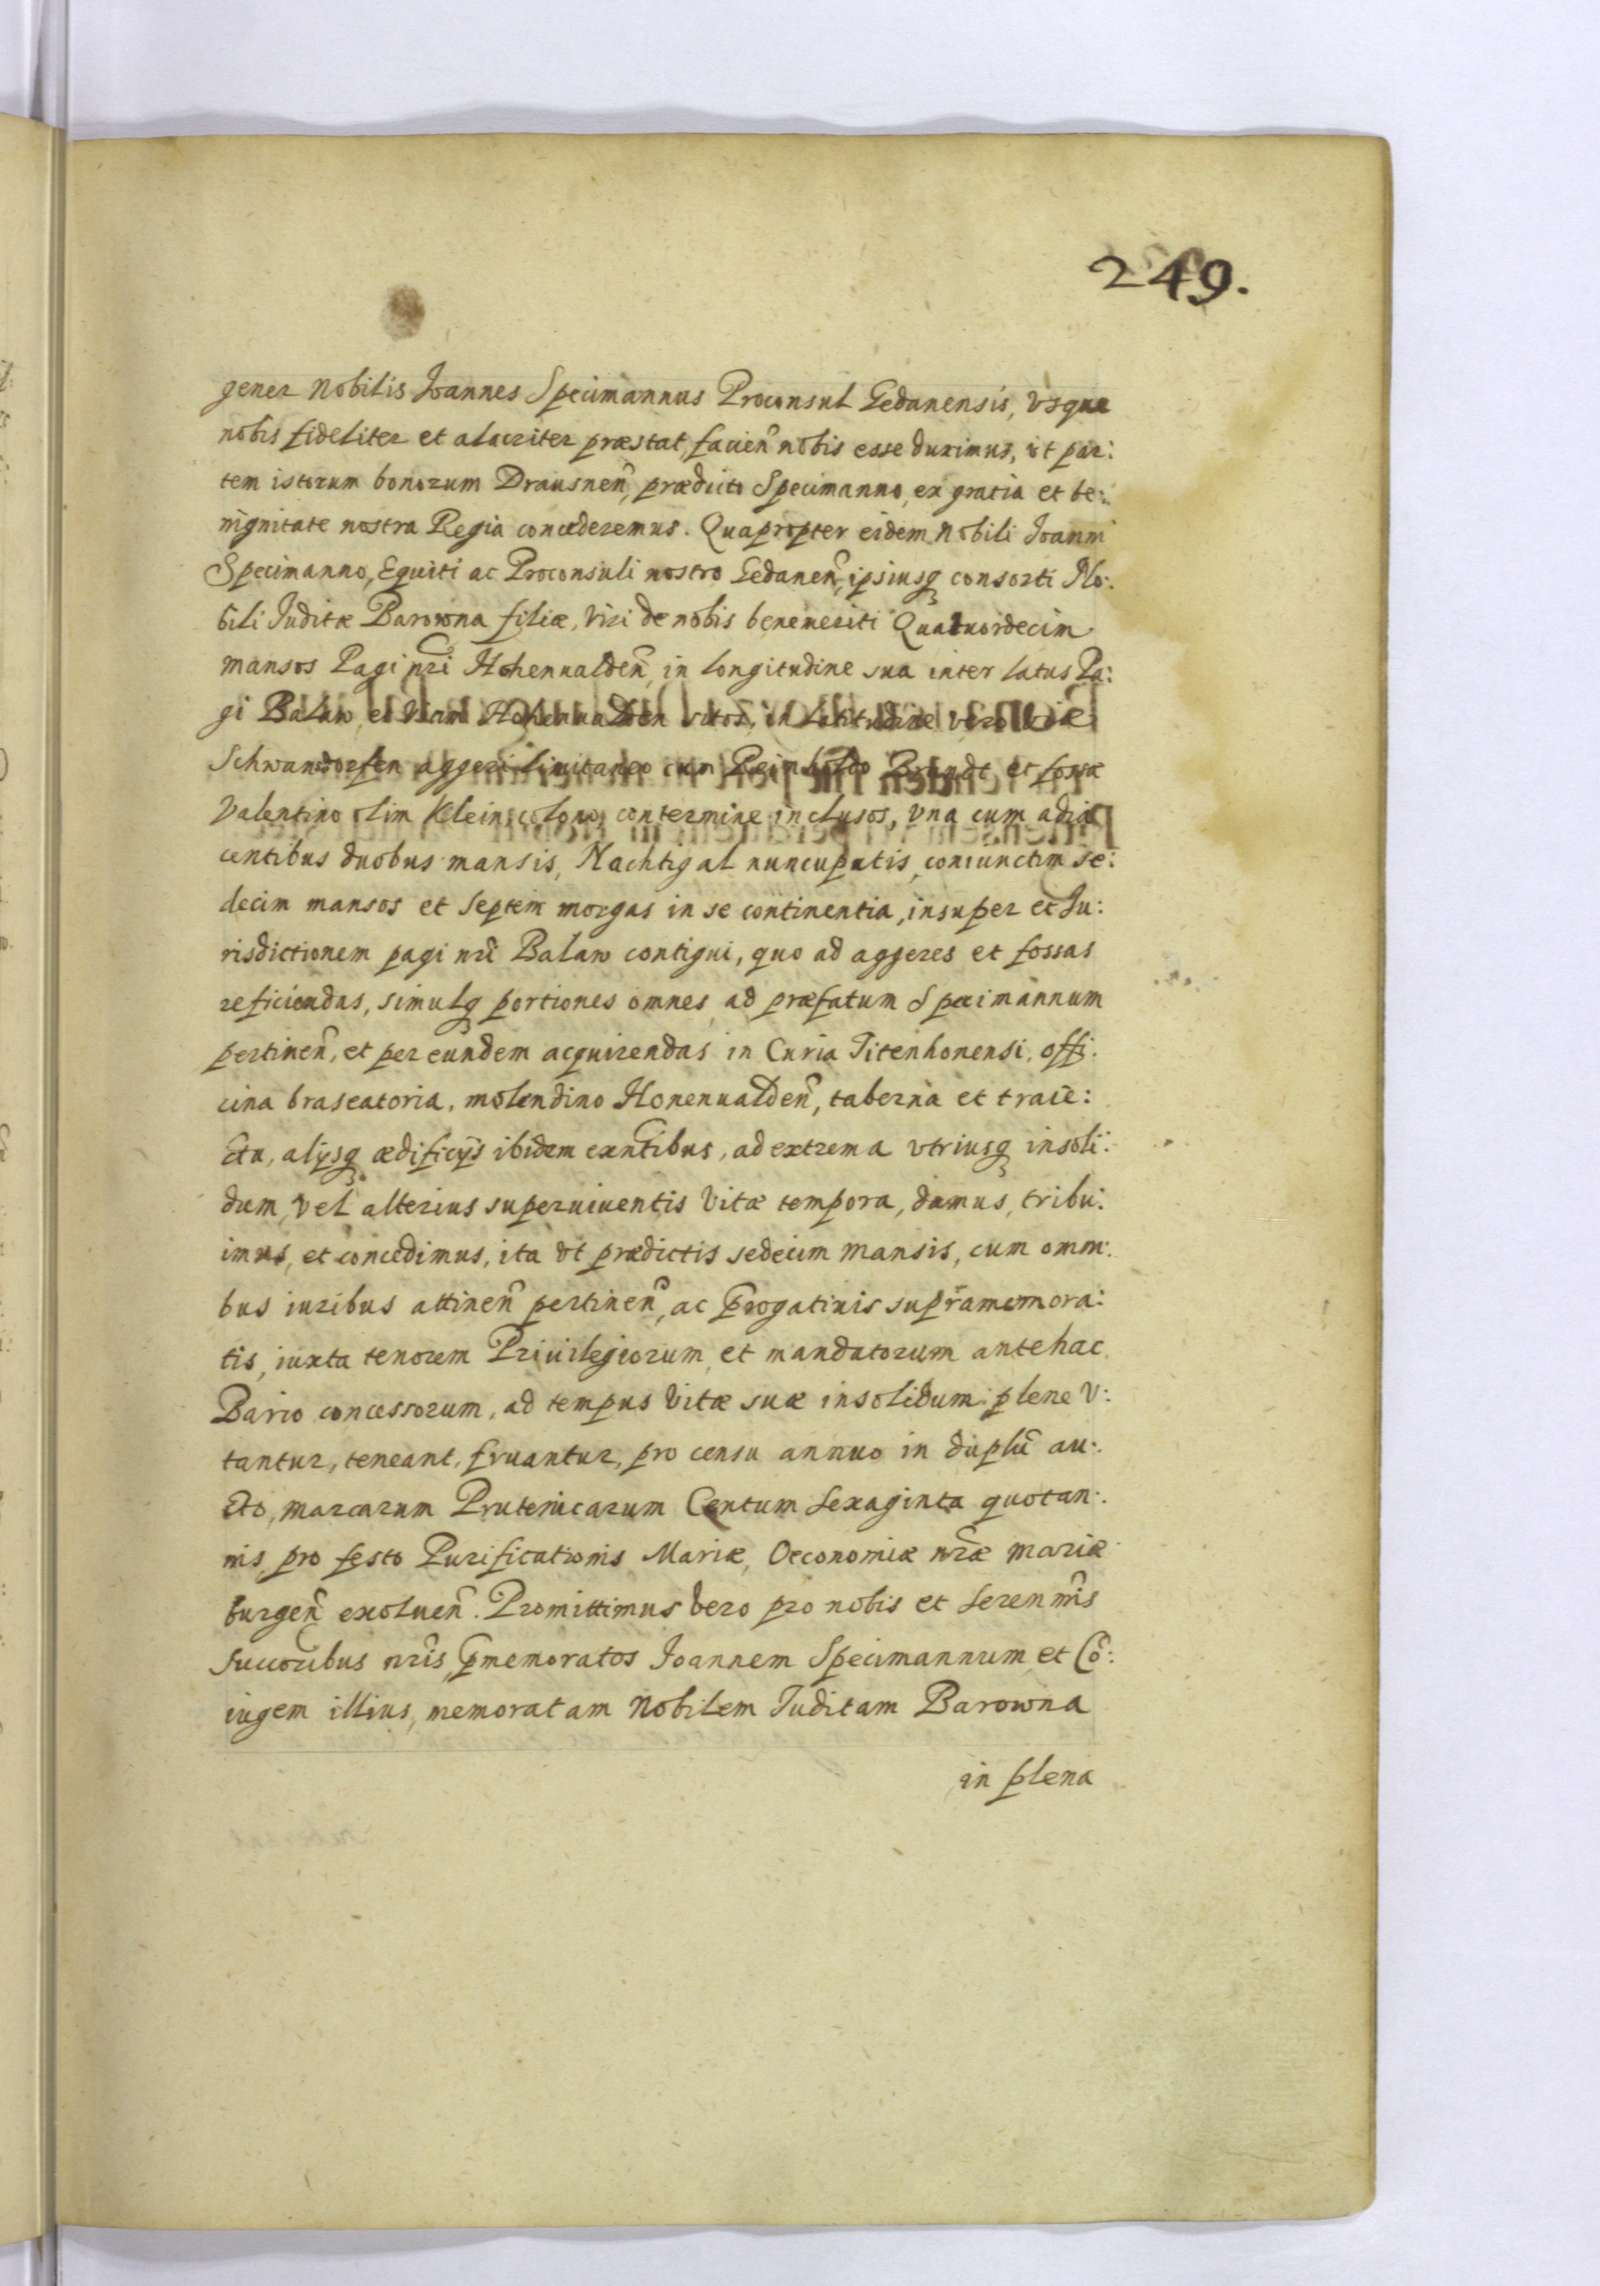 249.
gener Nobilis Ioannes Specimannus Proconsul Gedanensis, vsque
nobis fideliter et alacriter præstat, facien̄ nobis esse duximus, vt par:
tem istorum bonorum Drausnen̄, prædicto Specimanno, ex gratia et be:
nignitate nostra Regia concederemus. Quapropter eidem Nobili Ioanni
Specimanno, Equiti ac Proconsuli nostro Gedanen̄, ipsiusq consorti No:
bili Juditæ Barowna filiæ, viri de nobis benemeriti Quatuordecim
mansos Pagi nr̄i Hohenualden̄, in longitudine sua inter latus Pa:
gi Balaw, et viam Hohenualden sitos, in latitudine vero viæ
Schwansdorfen aggeri limitaneo cum Reinholdo Brandt et fossæ
Valentino olim Klein, colono, contermine inclusos, vna cum adia
centibus duobus mansis, Nachtigal nuncupatis, coniunctim se:
decim mansos et septem morgas in se continentia, insuper et Iu:
risdictionem pagi nr̄i Balaw contigui, quo ad aggeres et fossas
reficiendas, simulq portiones omnes, ad præfatum Specimannum
pertinen̄, et per eundem acquirendas in Curia Titenhonensi, offi:
cina braseatoria, molendino Honenualden̄, taberna et traie:
ctu, alijsq ædificijs ibidem exn̄tibus, ad extrema vtriusq insoli:
dum, vel alterius superuiuentis vitæ tempora, damus, tribu:
imus, et concedimus, ita vt prædictis sedecim mansis, cum omni:
bus iuribus attinen̄ pertinen̄, ac p̄rogatiuis supr̄amemora:
tis, iuxta tenorem Priuilegiorum, et mandatorum antehac
Bario concessorum, ad tempus vitæ suæ insolidum plene v:
tantur, teneant, fruantur, pro censu annuo in duplū au:
cto, marcarum Prutenicarum Centum sexaginta quotan:
nis, pro festo Purificationis Mariæ, Oeconomiæ nr̄æ Mariæ
burgen̄ exoluen̄. Promittimus vero pro nobis et seren̄mis
succoribus nr̄is, p̄memoratos Ioannem Specimannum et Cō:
iugem illius, memoratam Nobilem Juditam Barowna
in plena